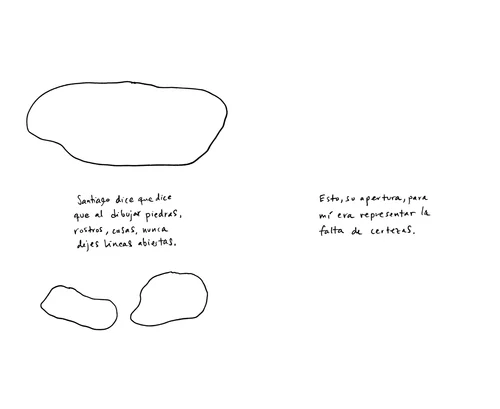 Santiago dice que dice
que al dibujar piedras,
rostros, cosas, nunca
dejes líneas abiertas.
Esto, su apertura, para
mí era representar la
falta de certezas.